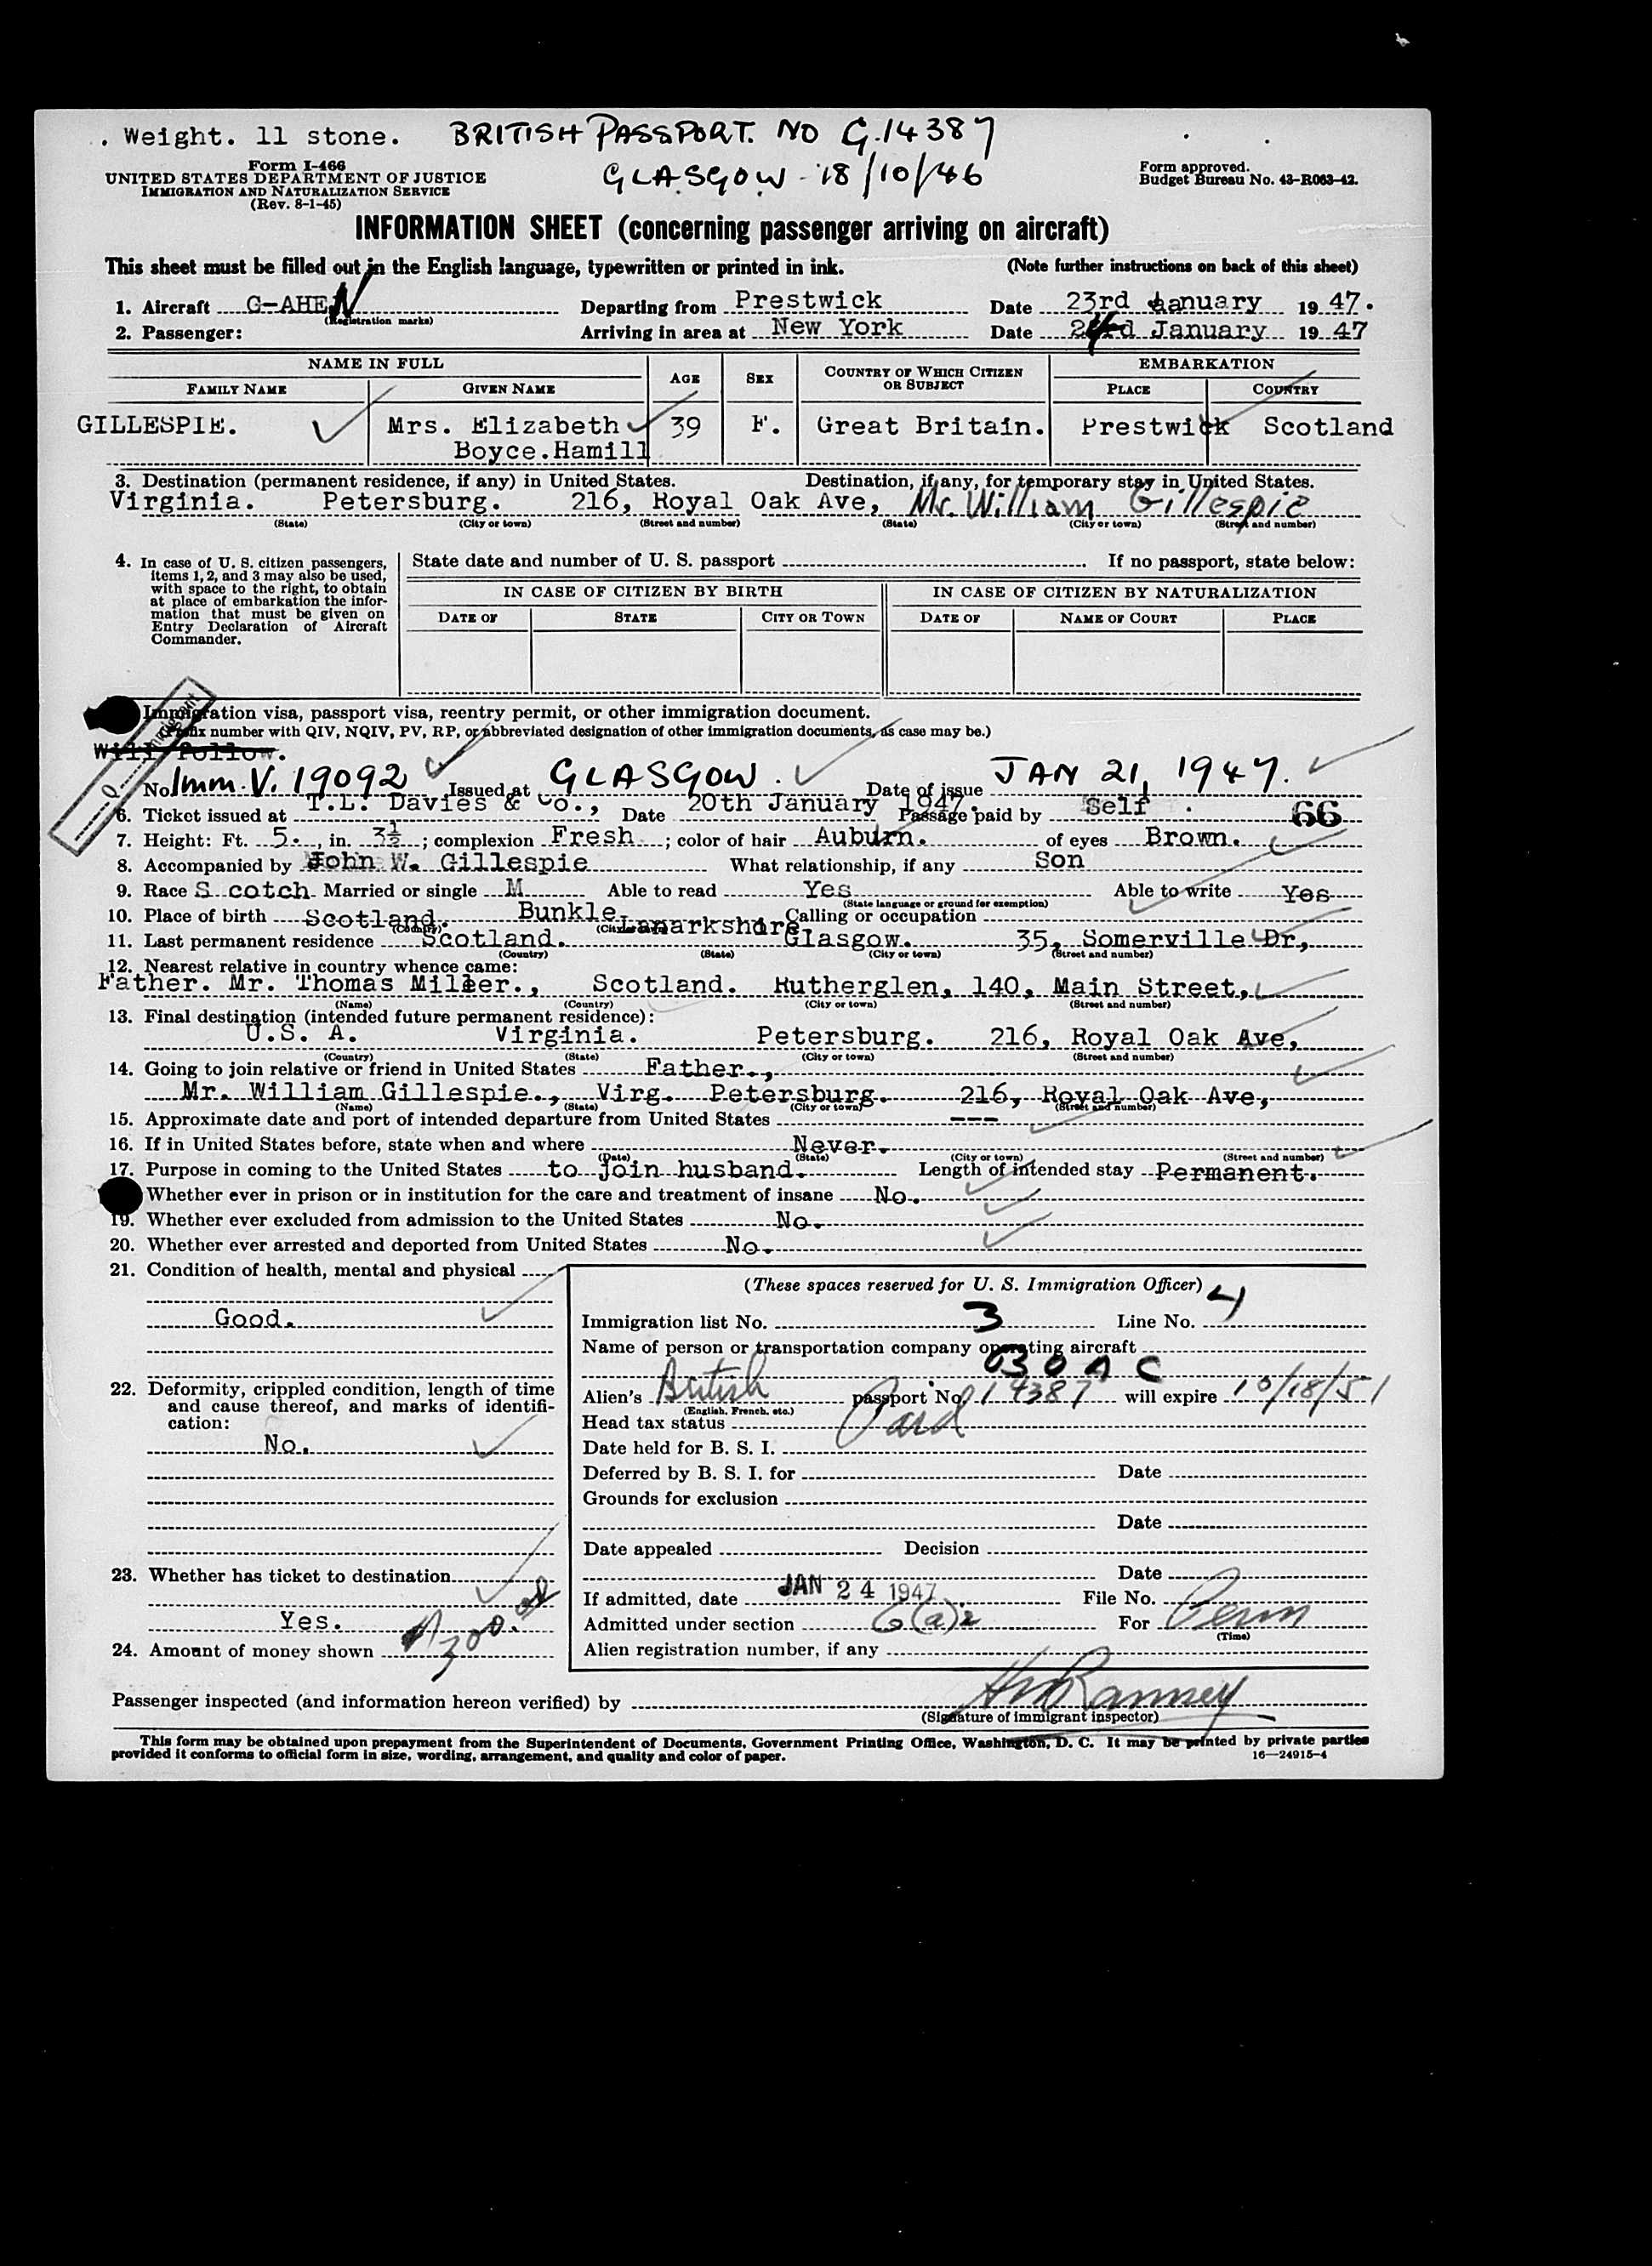 . Weight. 11 stone. BRITISH PASSPORT. NO G.14387
GLASGOW - 18/10/46
Form I-466
UNITED STATES DEPARTMENT OF JUSTICE
IMMIGRATION AND NATURALIZATION SERVICE
(Rev. 8-1-45)
Form approved.
Budget Bureau No. 43-R063-42.
INFORMATION SHEET (concerning passenger arriving on aircraft)
This sheet must be filled out in the English language, typewritten or printed in ink. (Note further instructions on back of this sheet)
1. Aircraft G-AHEN Departing from Prestwick Date 23rd January 19 47.
(Registration marks)
2. Passenger: Arriving in area at New York Date 24 January 19 47
NAME IN FULL AGE SEX COUNTRY OF WHICH CITIZEN OR SUBJECT EMBARKATION
FAMILY NAME GIVEN NAME PLACE COUNTRY
GILLESPIE. Mrs. Elizabeth 39 F. Great Britain. Prestwick Scotland
Boyce.Hamill
3. Destination (permanent residence, if any) in United States. Destination, if any, for temporary stay in United States.
Virginia. Petersburg. 216, Royal Oak Ave, Mr. William Gillespie
(State) (City or town) (Street and number) (State) (City or town) (Street and number)
4. In case of U. S. citizen passengers, items 1, 2, and 3 may also be used, with space to the right, to obtain at place of embarkation the information that must be given on Entry Declaration of Aircraft Commander.
State date and number of U. S. passport If no passport, state below:
IN CASE OF CITIZEN BY BIRTH IN CASE OF CITIZEN BY NATURALIZATION
DATE OF STATE CITY OR TOWN DATE OF NAME OF COURT PLACE
Immigration visa, passport visa, reentry permit, or other immigration document.
(Prefix number with QIV, NQIV, PV, RP, or abbreviated designation of other immigration documents, as case may be.)
Will Follow.
No. Imm. V. 19092 Issued at GLASGOW. Date of issue JAN 21, 1947.
6. Ticket issued at T.L. Davies & Co., Date 20th January 1947. Passage paid by Self. 66
7. Height: Ft. 5., in. 3½; complexion Fresh; color of hair Auburn. of eyes Brown.
8. Accompanied by John W. Gillespie What relationship, if any Son
9. Race S cotch Married or single M Able to read Yes Able to write Yes
(State language or ground for exemption)
10. Place of birth Scotland. Bunkle Lanarkshire Calling or occupation
(Country) (City or town)
11. Last permanent residence Scotland. Glasgow. 35, Somerville Dr,
(Country) (State) (City or town) (Street and number)
12. Nearest relative in country whence came:
Father. Mr. Thomas Miller., Scotland. Rutherglen, 140, Main Street,
(Name) (Country) (City or town) (Street and number)
13. Final destination (intended future permanent residence):
U.S. A. Virginia. Petersburg. 216, Royal Oak Ave,
(Country) (State) (City or town) (Street and number)
14. Going to join relative or friend in United States Father.,
Mr. William Gillespie., Virg. Petersburg. 216, Royal Oak Ave,
(Name) (State) (City or town) (Street and number)
15. Approximate date and port of intended departure from United States ---
16. If in United States before, state when and where Never.
(Date) (State) (City or town) (Street and number)
17. Purpose in coming to the United States to join husband. Length of intended stay Permanent.
Whether ever in prison or in institution for the care and treatment of insane No.
19. Whether ever excluded from admission to the United States No.
20. Whether ever arrested and deported from United States No.
21. Condition of health, mental and physical
Good.
22. Deformity, crippled condition, length of time and cause thereof, and marks of identification:
No.
23. Whether has ticket to destination
Yes.
24. Amount of money shown $300.00
(These spaces reserved for U. S. Immigration Officer)
Immigration list No. 3 Line No. 4
Name of person or transportation company operating aircraft
BOAC
Alien's British passport No. 14387 will expire 10/18/51
(English, French, etc.)
Head tax status Paid
Date held for B. S. I.
Deferred by B. S. I. for Date
Grounds for exclusion
Date
Date appealed Decision
Date
If admitted, date JAN 24 1947 File No.
Admitted under section 6(a)2 For Perm
(Time)
Alien registration number, if any
Passenger inspected (and information hereon verified) by Ranney
(Signature of immigrant inspector)
This form may be obtained upon prepayment from the Superintendent of Documents, Government Printing Office, Washington, D. C. It may be printed by private parties
provided it conforms to official form in size, wording, arrangement, and quality and color of paper. 16—24915-4